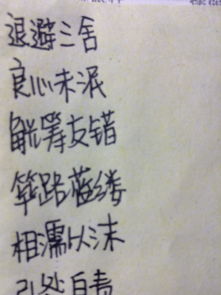 退避三舍
良心未泯
觥筹交错
筚路蓝缕
相濡以沫
引咎自责